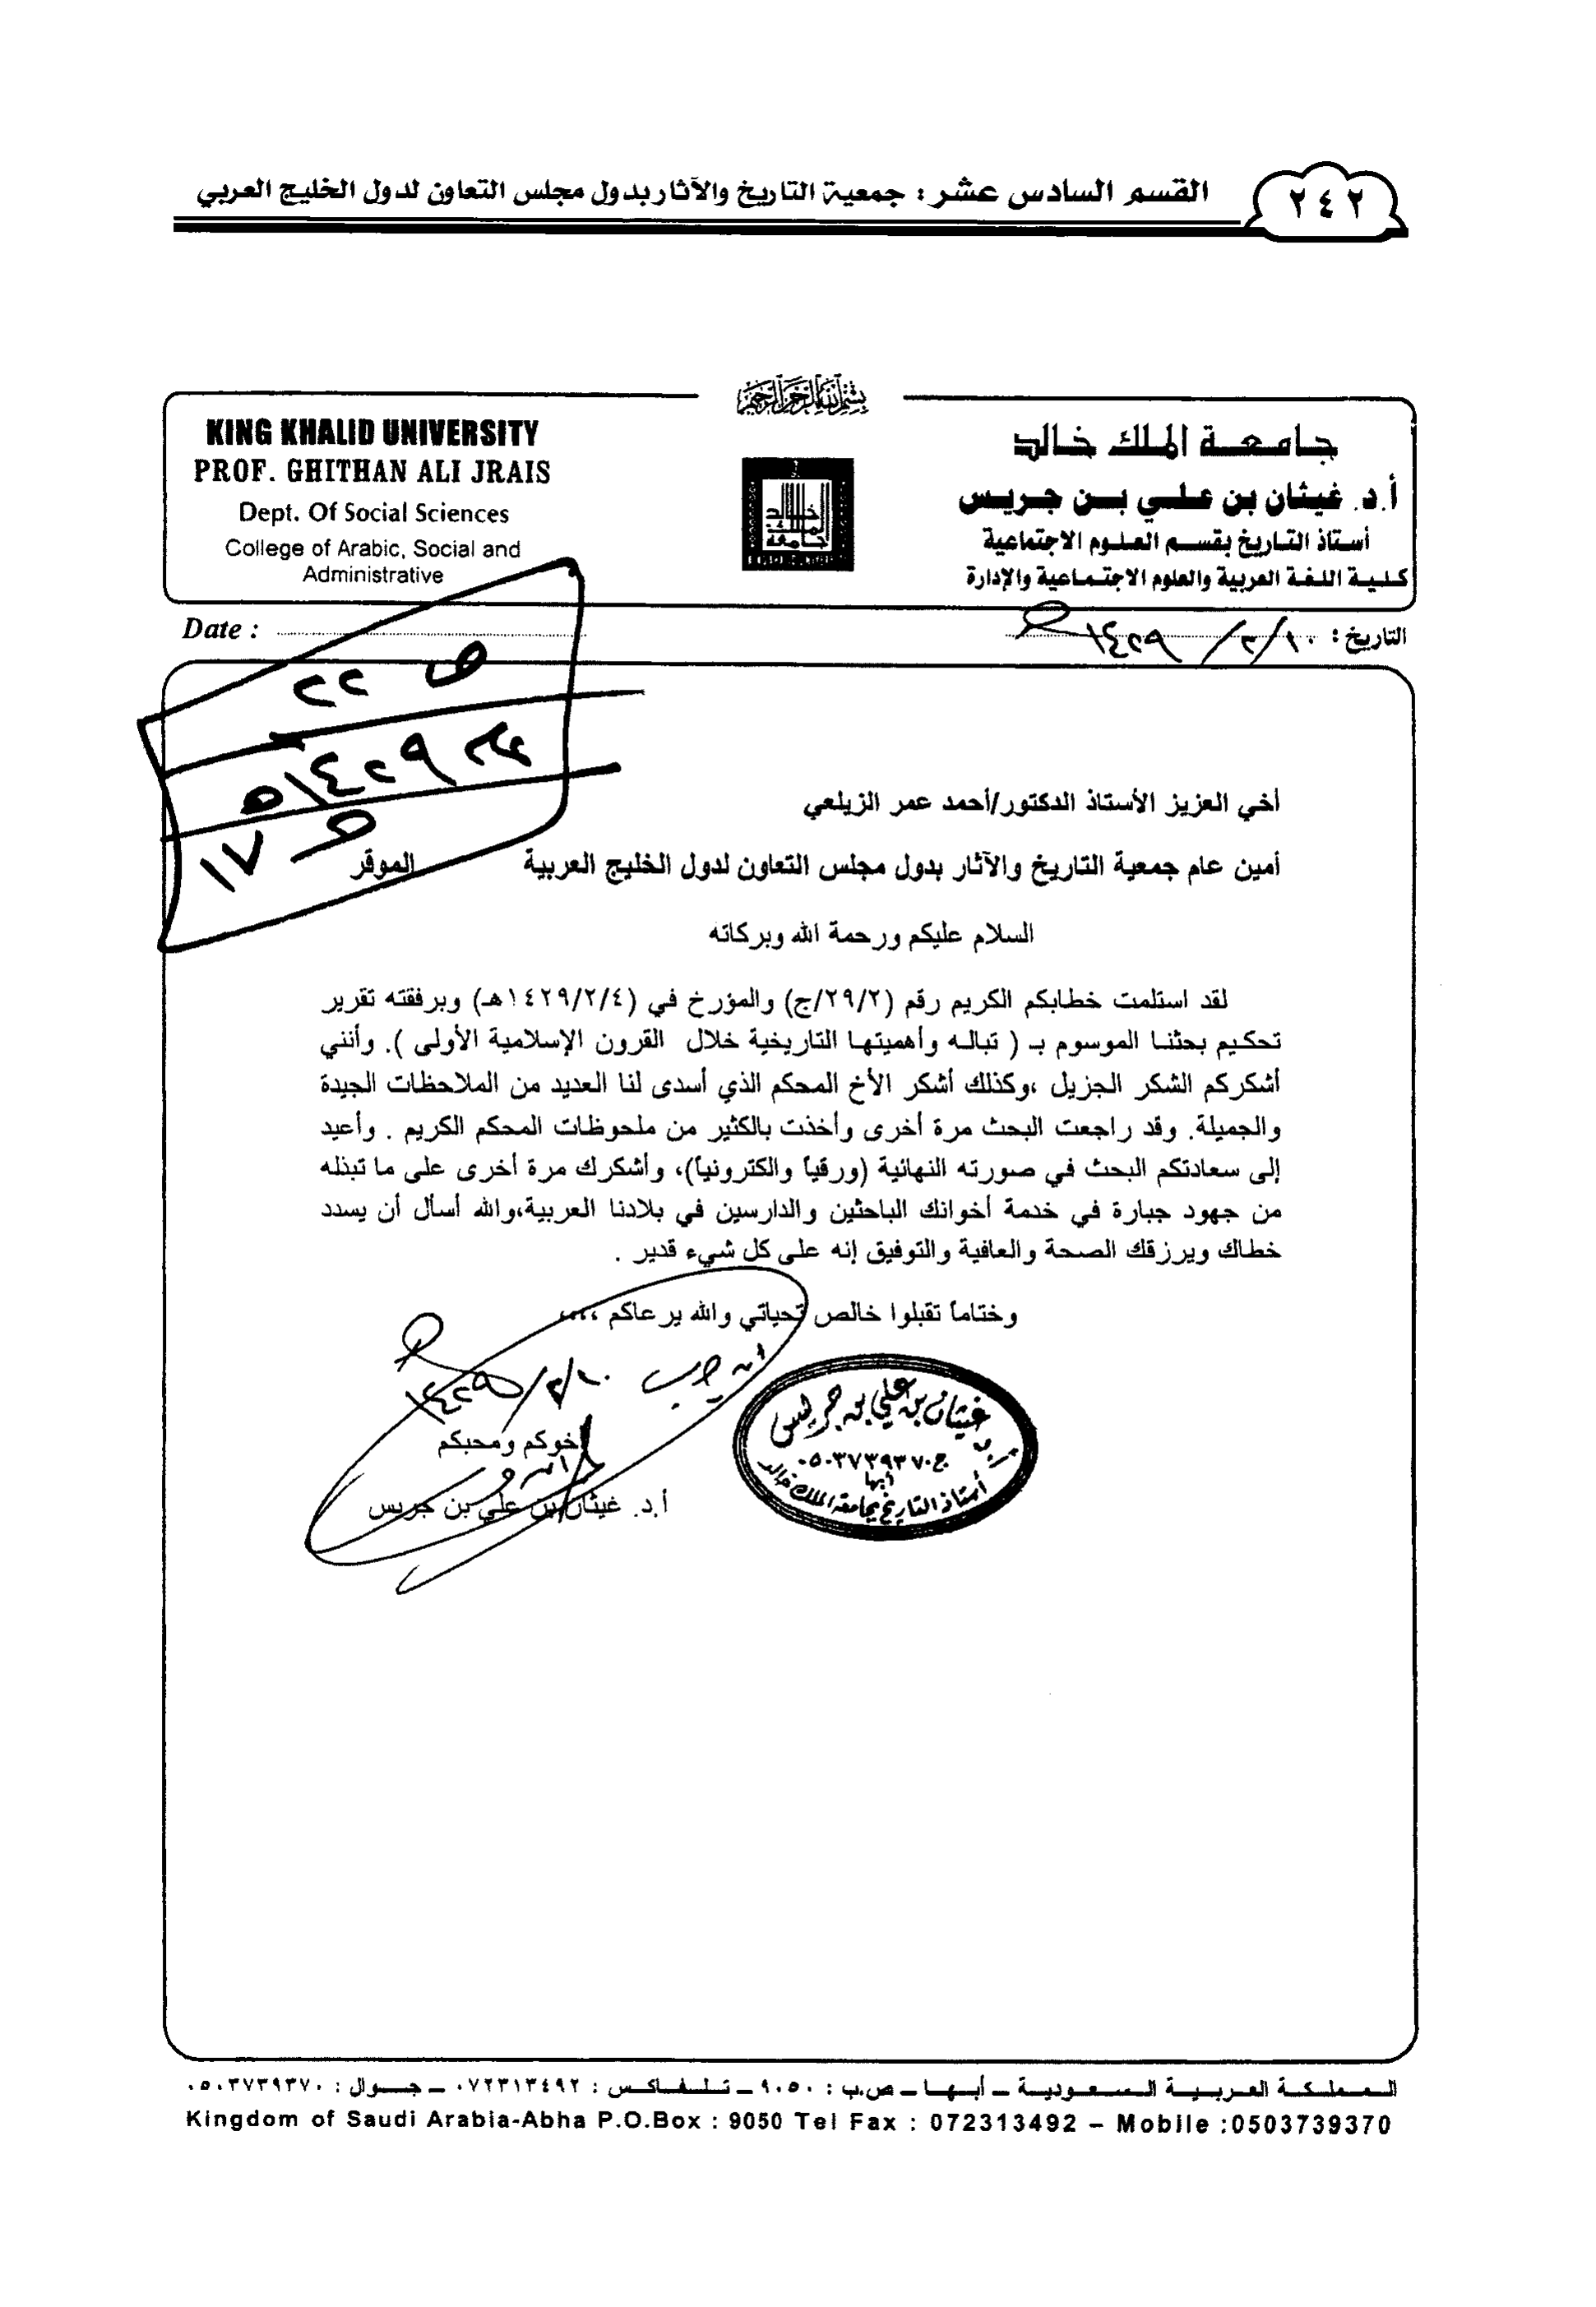 القسم السادس عشر : جمعية التاريخ والآثار بدول مجلس التعاون لدول الخليج العربي
٢٤٢
بسم الله الرحمن الرحيم
KING KHALID UNIVERSITY
PROF. GHITHAN ALI JRAIS
Dept. Of Social Sciences
College of Arabic, Social and
Administrative
جامعة الملك خالد
أ.د. غيثان بن علي بن جريس
أستاذ التاريخ بقسم العلوم الاجتماعية
كلية اللغة العربية والعلوم الاجتماعية والإدارة
جامعة الملك خالد
Date :
التاريخ : ١٠/٢/١٤٢٩هـ
أخي العزيز الأستاذ الدكتور/أحمد عمر الزيلعي
أمين عام جمعية التاريخ والآثار بدول مجلس التعاون لدول الخليج العربية الموقر
السلام عليكم ورحمة الله وبركاته
لقد استلمت خطابكم الكريم رقم (٢٩/٢/ج) والمؤرخ في (١٤٢٩/٢/٤هـ) وبرفقته تقرير
تحكيم بحثنا الموسوم بـ ( تباله وأهميتها التاريخية خلال القرون الإسلامية الأولى ). وأنني
أشكركم الشكر الجزيل ،وكذلك أشكر الأخ المحكم الذي أسدى لنا العديد من الملاحظات الجيدة
والجميلة. وقد راجعت البحث مرة أخرى وأخذت بالكثير من ملحوظات المحكم الكريم . وأعيد
إلى سعادتكم البحث في صورته النهائية (ورقياً والكترونياً)، وأشكرك مرة أخرى على ما تبذله
من جهود جبارة في خدمة أخوانك الباحثين والدارسين في بلادنا العربية،والله أسأل أن يسدد
خطاك ويرزقك الصحة والعافية والتوفيق إنه على كل شيء قدير .
وختاماً تقبلوا خالص تحياتي والله يرعاكم ،،،،
١٠/٢/١٤٢٩هـ
أخوكم ومحبكم
أ.د. غيثان بن علي بن جريس
غيثان بن علي بن جريس
ج٠٥٠٣٧٣٩٣٧٠
أبها
أستاذ التاريخ بجامعة الملك خالد
المملكة العربية السعودية – أبها – ص.ب : ٩٠٥٠ – تلفاكس : ٠٧٢٣١٣٤٩٢ – جوال : ٠٥٠٣٧٣٩٣٧٠
Kingdom of Saudi Arabia-Abha P.O.Box : 9050 Tel Fax : 072313492 – Mobile :0503739370